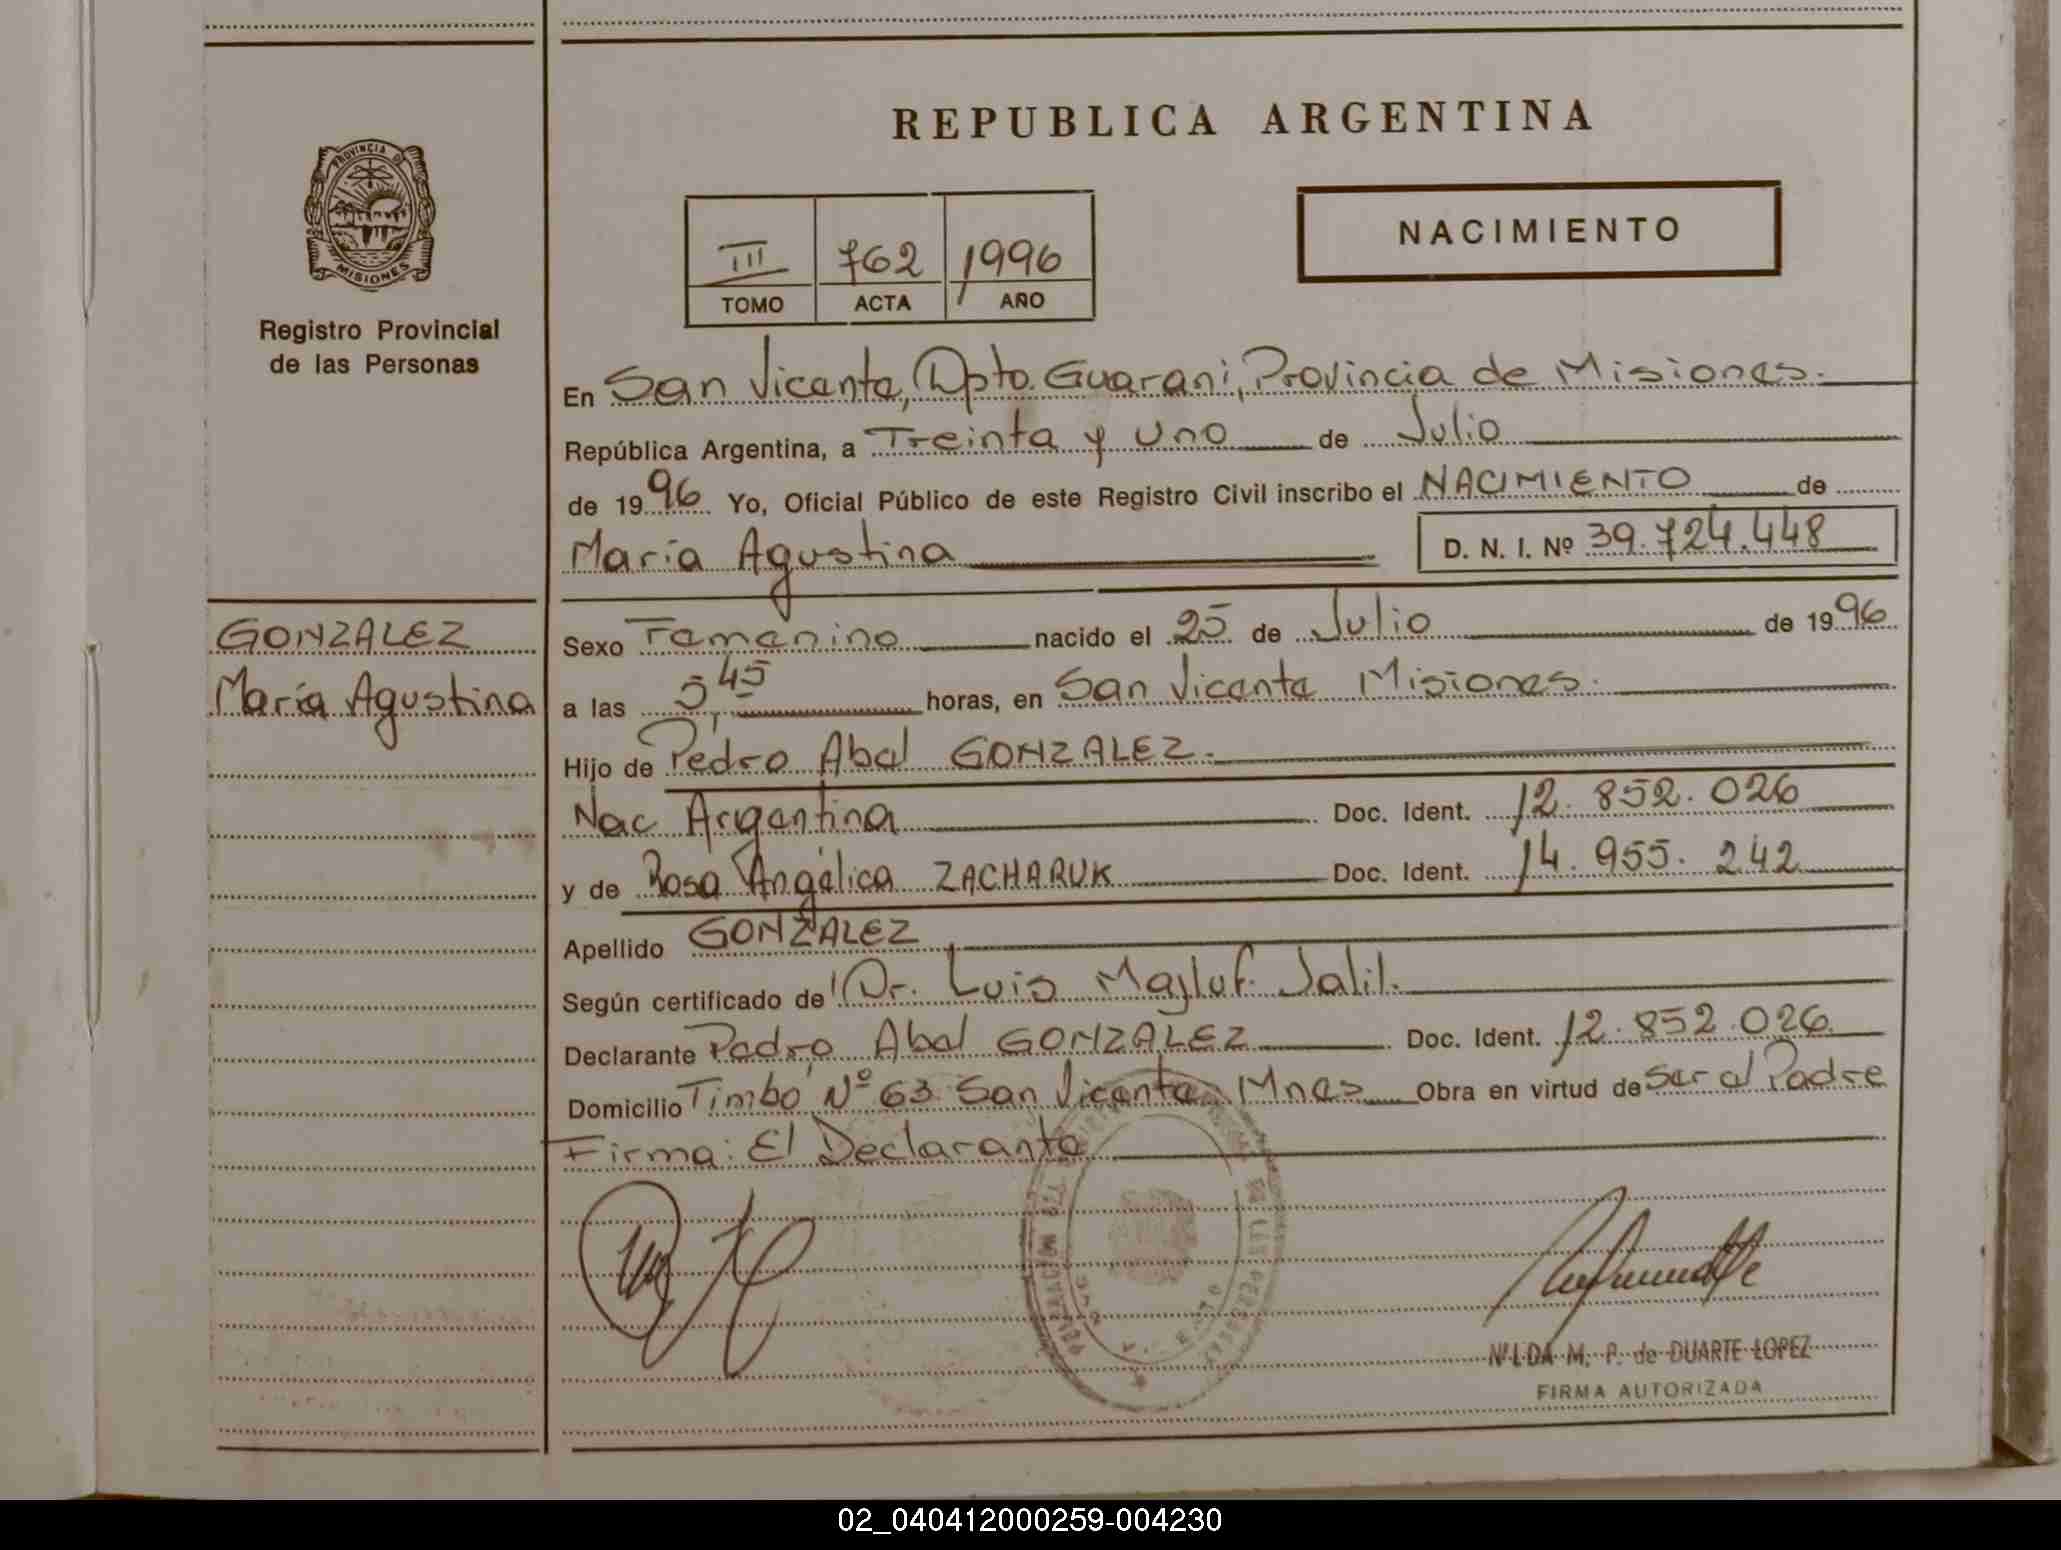 REPUBLICA ARGENTINA
PROVINCIA DE
MISIONES
Registro Provincial
de las Personas
NACIMIENTO
III 762 1996
TOMO ACTA AÑO
En San Vicente, Dpto. Guarani, Provincia de Misiones.
República Argentina, a Treinta y Uno de Julio
de 1996 Yo, Oficial Público de este Registro Civil inscribo el NACIMIENTO de
María Agustina D. N. I. Nº 39.724.448
GONZALEZ
María Agustina
Sexo Femenino nacido el 25 de Julio de 1996
a las 5,45 horas, en San Vicente Misiones.
Hijo de Pedro Abel GONZALEZ.
Nac Argentina Doc. Ident. 12.852.026
y de Rosa Angélica ZACHARUK Doc. Ident. 14.955.242
Apellido GONZALEZ
Según certificado de Dr. Luis Majluf Jalil.
Declarante Pedro Abel GONZALEZ Doc. Ident. 12.852.026
Domicilio Timbó Nº 63 San Vicente Mnes Obra en virtud de ser el Padre
Firma: El Declarante
NILDA M. P. de DUARTE LOPEZ
FIRMA AUTORIZADA
02_040412000259-004230